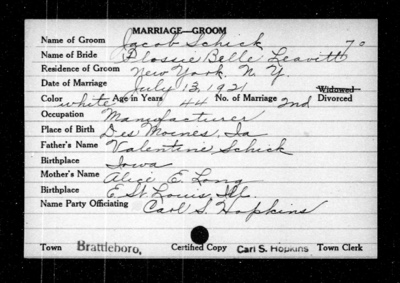 MARRIAGE—GROOM
Name of Groom Jacob Schick 70
Name of Bride Flossie Belle Leavitt
Residence of Groom New York, N. Y.
Date of Marriage July 13, 1921
Color white Age in Years 44 No. of Marriage 2nd Widowed Divorced
Occupation Manufacturer
Place of Birth Des Moines, Ia
Father's Name Valentine Schick
Birthplace Iowa
Mother's Name Alice E. Long
Birthplace E St Louis, Ill.
Name Party Officiating Carl S. Hopkins
Town Brattleboro, Certified Copy Carl S. Hopkins Town Clerk